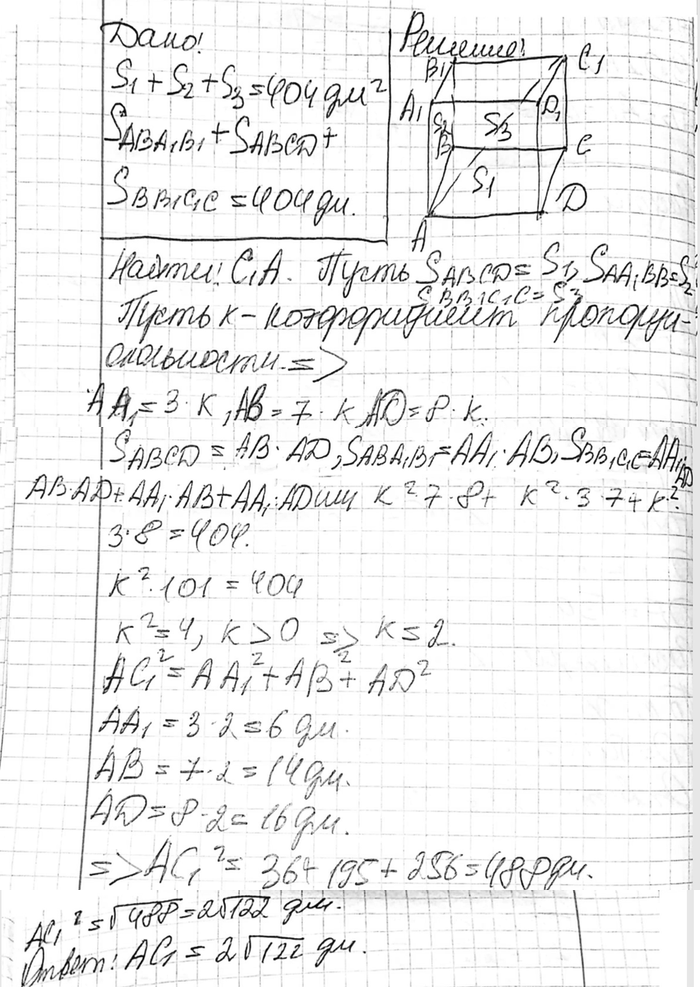 Дано!
S1 + S2 + S3 = 404 дм²
SABA1B1 + SABCD +
SBB1C1C = 404 дм.
Решение!
B1
C1
A1
D1
S2
S3
B
C
S1
A
D
Найти: C1A. Пусть SABCD = S1, SAA1BB = S2
SBB1C1C = S3
Пусть к - коэффициент пропорци-
ональности. =>
AA1 = 3 · к, AB = 7 · к, AD = 8 · к.
SABCD = AB · AD, SABA1B1 = AA1 · AB, SBB1C1C = AA1 · AD
AB · AD + AA1 · AB + AA1 · AD или к² · 7 · 8 + к² · 3 · 7 + к² ·
3 · 8 = 404.
к² · 101 = 404
к² = 4, к > 0 => к = 2.
AC1² = AA1² + AB² + AD²
AA1 = 3 · 2 = 6 дм.
AB = 7 · 2 = 14 дм.
AD = 8 · 2 = 16 дм.
=> AC1² = 36 + 195 + 256 = 488 дм.
AC1² = √488 = 2√122 дм.
Ответ: AC1 = 2√122 дм.